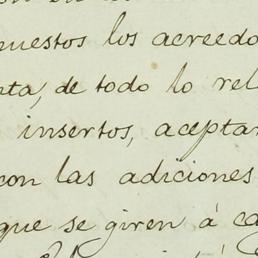 puestos los acreedo
nta, de todo lo rel
insertos, aceptan
con las adiciones
que se giren á ca